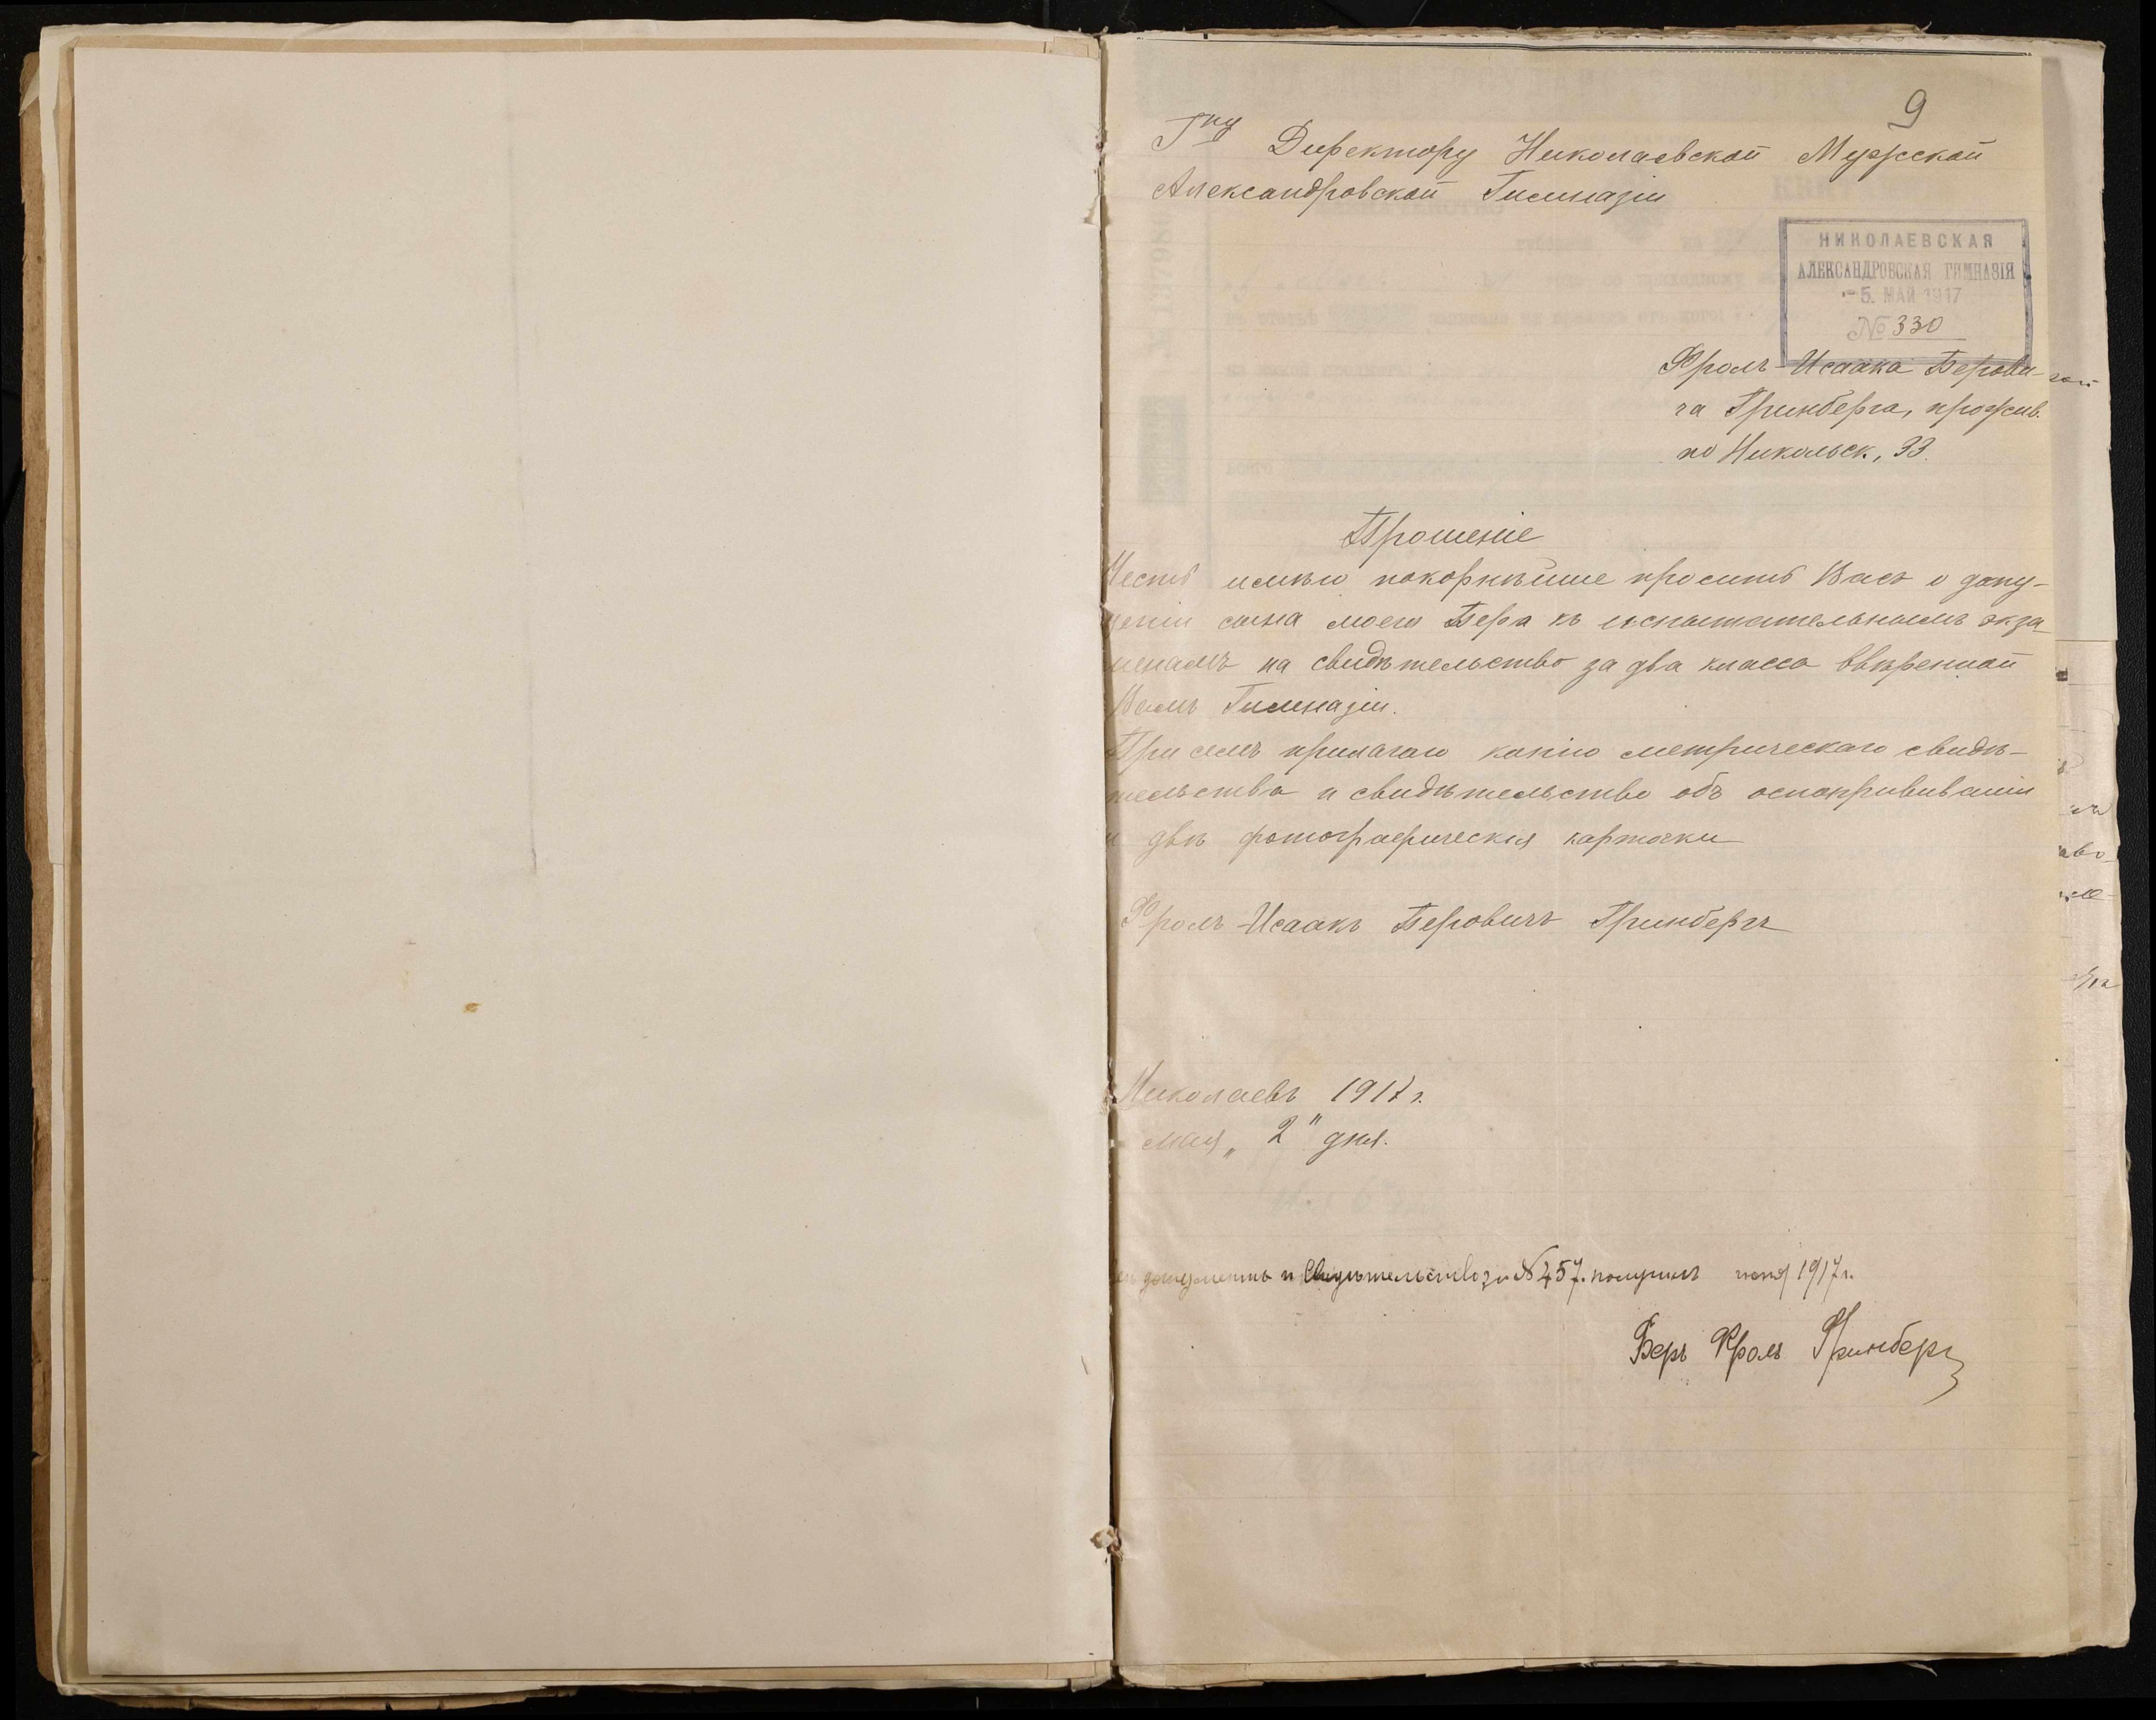 9
Гну Директору Николаевской Мужской
Александровской Гимназіи
НИКОЛАЕВСКАЯ
АЛЕКСАНДРОВСКАЯ ГИМНАЗІЯ
- 5. МАЙ 1917
№ 330
Фроль-Исаака Берови-
ча Гринберга, прожив.
по Никольск., 33.
Прошеніе
Честь имѣю покорнѣйше просить Васъ о допу-
щеніи сына моего Бера къ испытательнымъ экза-
менамъ на свидѣтельство за два класса ввѣренной
Вамъ Гимназіи.
При семъ прилагаю копію метрическаго свидѣ-
тельства и свидѣтельство объ оспопрививаніи
и двѣ фотографическія карточки
Фроль-Исаакъ Беровичъ Гринбергъ
Николаевъ 1917 г.
мая „ 2 " дня.
документы и Свидѣтельство за № 457. получилъ іюня 1917 г.
Беръ Фроль Гринберг